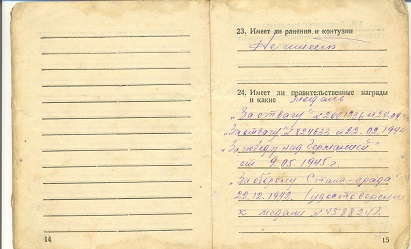 23. Имеет ли ранения и контузии
Не имеет
24. Имеет ли правительственные награды
и какие Медаль
„За отвагу"
„За отвагу" № 829633 от 22.02.194
„За победу над Германией"
от 9.05.1945 г.
„За оборону Сталинграда"
22.12.1942. Удостоверение
к медали №
14
15